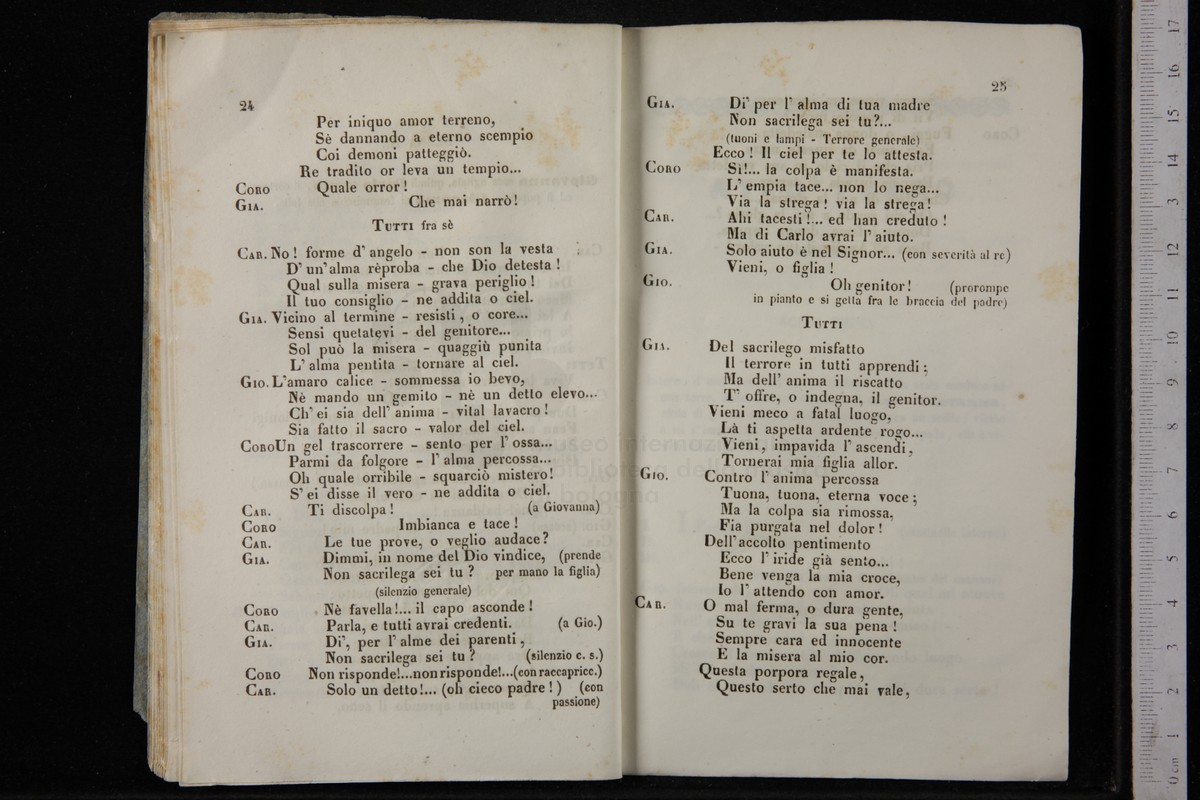 24
Per iniquo amor terreno,
Sè dannando a eterno scempio
Coi demoni patteggiò.
Re tradito or leva un tempio...
CORO Quale orror!
GIA. Che mai narrò!
TUTTI fra sè
CAR. No! forme d'angelo - non son la vesta
D'un'alma rèproba - che Dio detesta!
Qual sulla misera - grava periglio!
Il tuo consiglio - ne addita o ciel.
GIA. Vicino al termine - resisti, o core...
Sensi quetatevi - del genitore...
Sol può la misera - quaggiù punita
L'alma pentita - tornare al ciel.
GIO. L'amaro calice - sommessa io bevo,
Nè mando un gemito - nè un detto elevo...
Ch'ei sia dell'anima - vital lavacro!
Sia fatto il sacro - valor del ciel.
CORO Un gel trascorrere - sento per l'ossa...
Parmi da folgore - l'alma percossa...
Oh quale orribile - squarciò mistero!
S'ei disse il vero - ne addita o ciel.
CAR. Ti discolpa! (a Giovanna)
CORO Imbianca e tace!
CAR. Le tue prove, o veglio audace?
GIA. Dimmi, in nome del Dio vindice, (prende
Non sacrilega sei tu? per mano la figlia)
(silenzio generale)
CORO Nè favella!... il capo asconde!
CAR. Parla, e tutti avrai credenti. (a Gio.)
GIA. Di', per l'alme dei parenti,
Non sacrilega sei tu? (silenzio c. s.)
CORO Non risponde!...non risponde!...(con raccapricc.)
CAR. Solo un detto!... (oh cieco padre!) (con
passione)
25
GIA. Di' per l'alma di tua madre
Non sacrilega sei tu?...
(tuoni e lampi - Terrore generale)
Ecco! Il ciel per te lo attesta.
CORO Sì!... la colpa è manifesta.
L'empia tace... non lo nega...
Via la strega! via la strega!
CAR. Ahi tacesti!... ed han creduto!
Ma di Carlo avrai l'aiuto.
GIA. Solo aiuto è nel Signor... (con severità al re)
Vieni, o figlia!
GIO. Oh genitor! (prorompe
in pianto e si getta fra le braccia del padre)
TUTTI
GIA. Del sacrilego misfatto
Il terrore in tutti apprendi;
Ma dell'anima il riscatto
T'offre, o indegna, il genitor.
Vieni meco a fatal luogo,
Là ti aspetta ardente rogo...
Vieni, impavida l'ascendi,
Tornerai mia figlia allor.
GIO. Contro l'anima percossa
Tuona, tuona, eterna voce;
Ma la colpa sia rimossa,
Fia purgata nel dolor!
Dell'accolto pentimento
Ecco l'iride già sento...
Bene venga la mia croce,
Io l'attendo con amor.
CAR. O mal ferma, o dura gente,
Su te gravi la sua pena!
Sempre cara ed innocente
E la misera al mio cor.
Questa porpora regale,
Questo serto che mai vale,